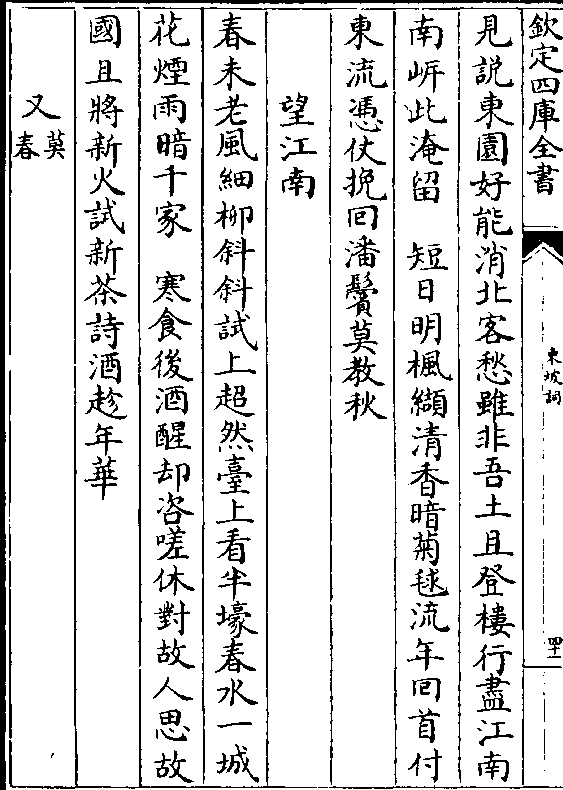 欽定四庫全書
東坡詞
四十一
見說東園好能消北客愁雖非吾土且登樓行盡江南
南岍此淹留　短日明楓纈清香暗菊毬流年回首付
東流凴仗挽回潘鬢莫教秋
望江南
春未老風細柳斜斜試上超然臺上看半壕春水一城
花煙雨暗千家　寒食後酒醒却咨嗟休對故人思故
國且將新火試新茶詩酒趁年華
又莫春